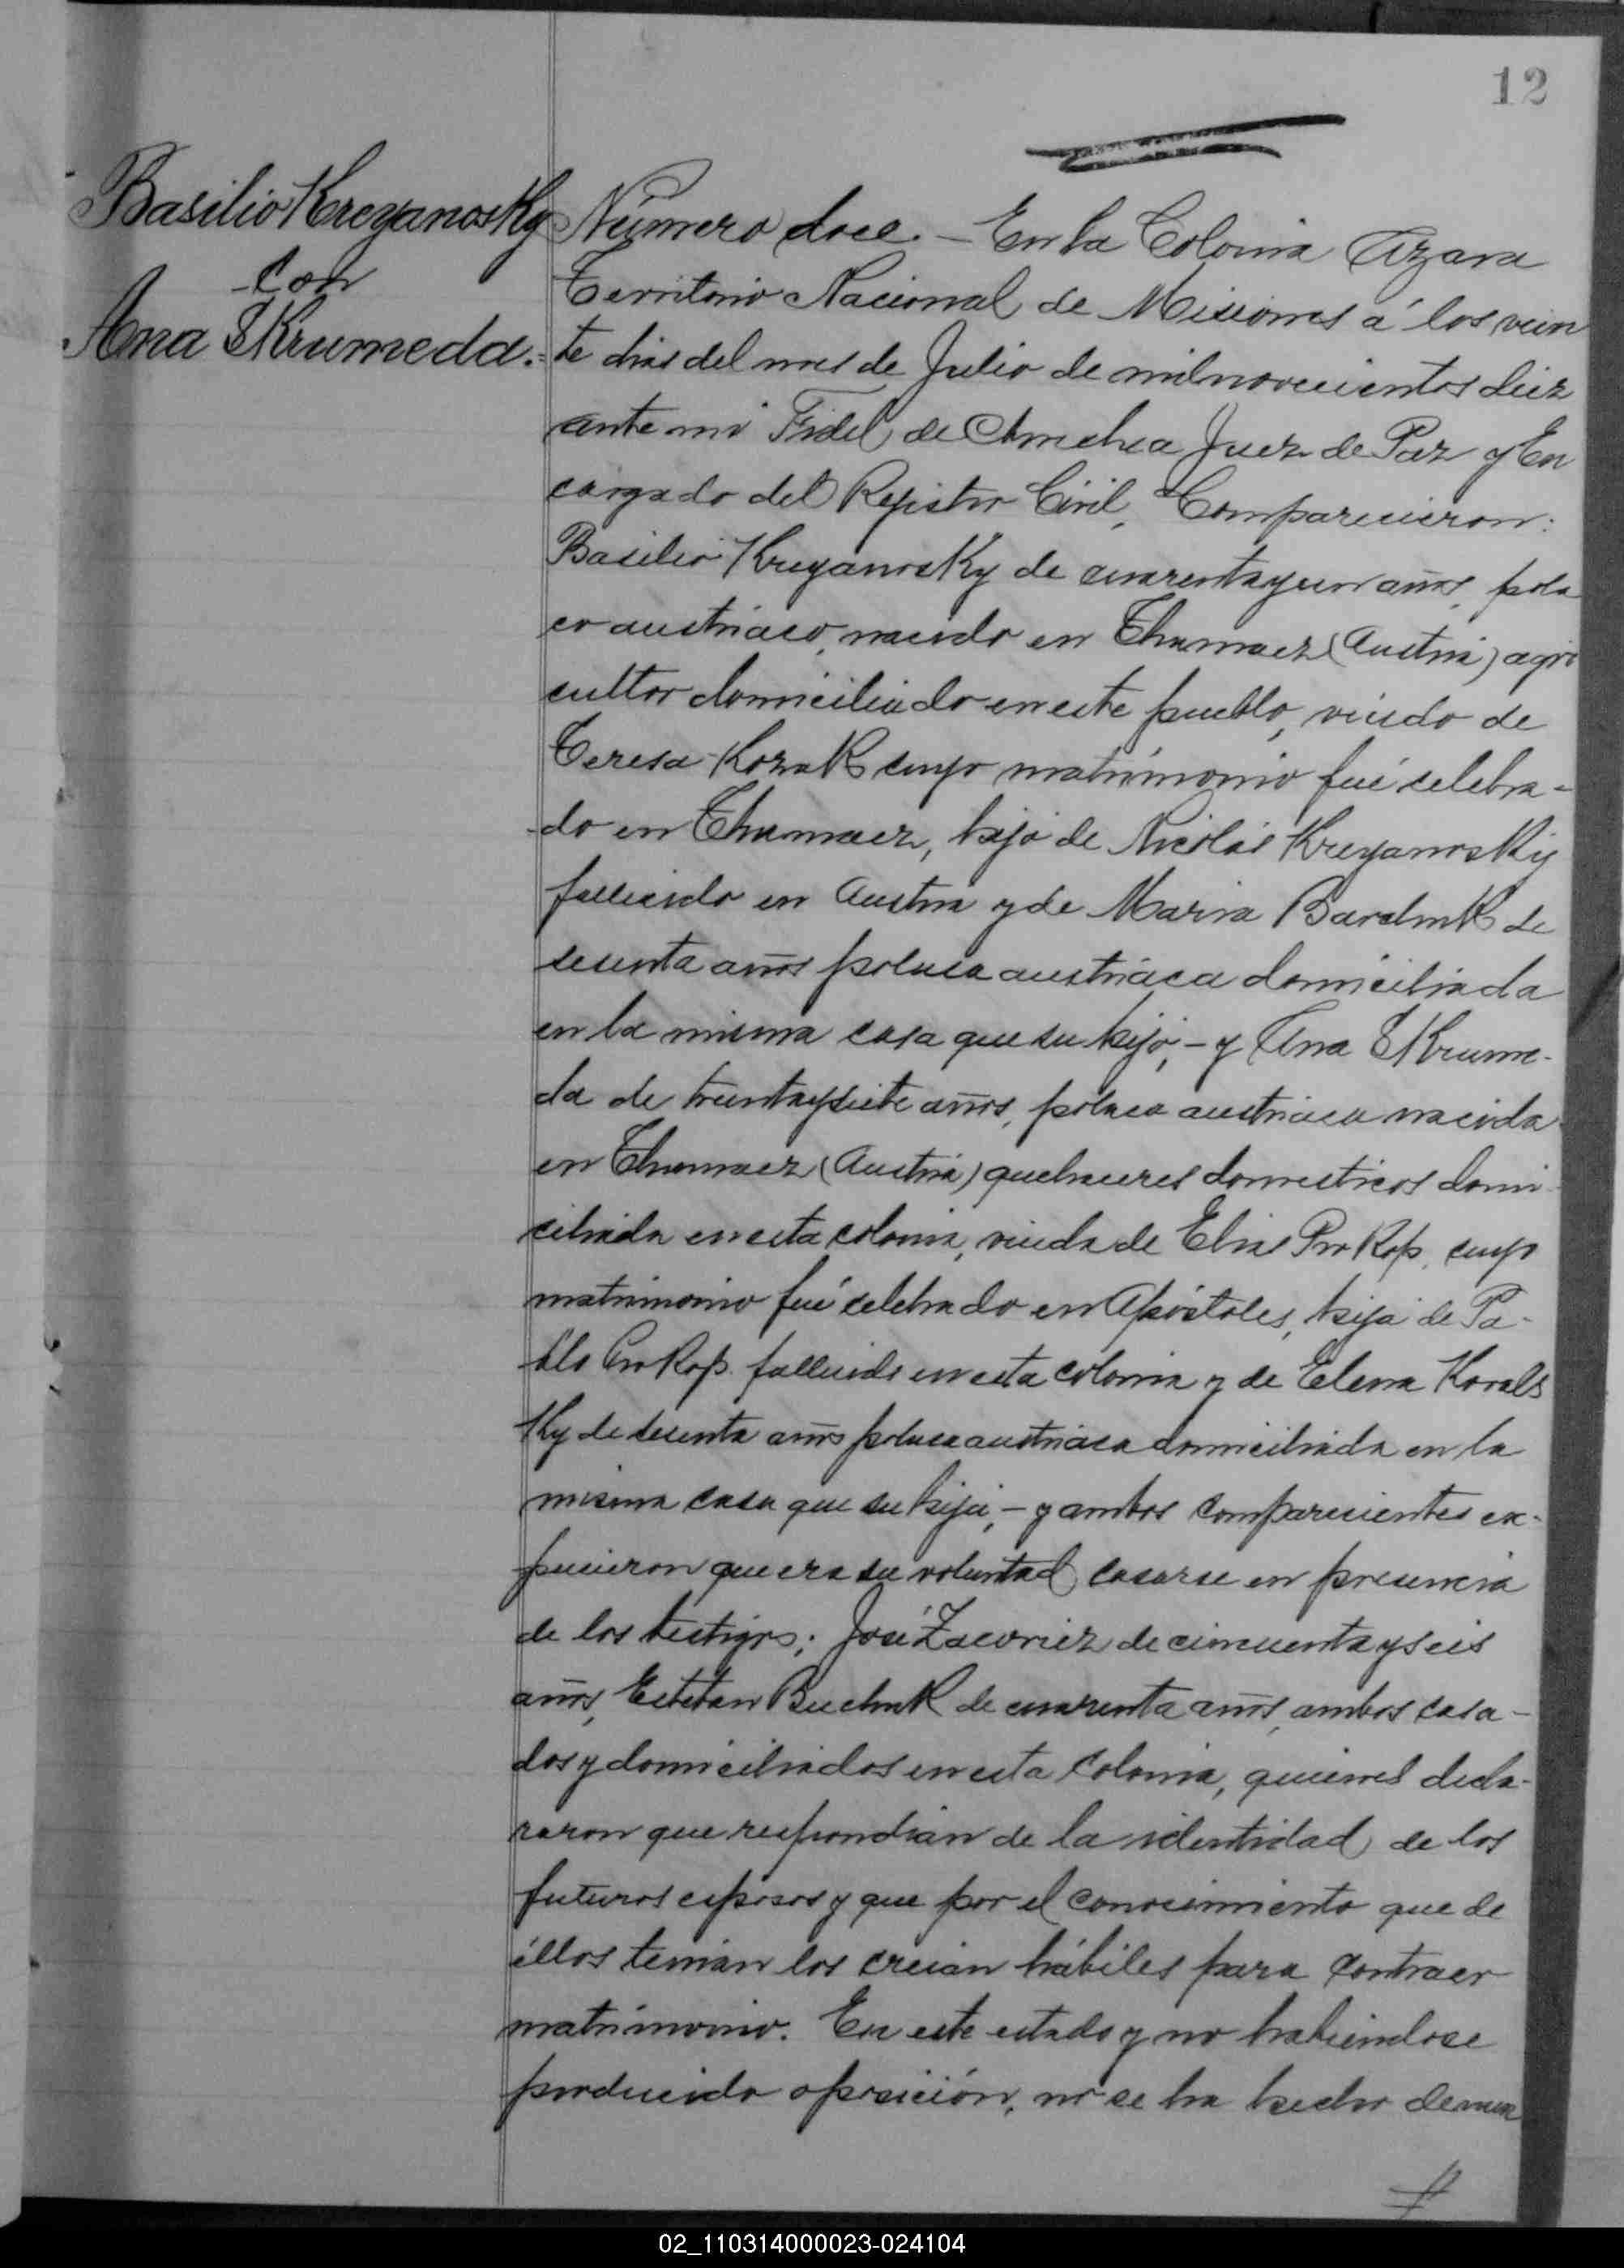 12
Basilio Kreyanosky
con
Ana SKrumeda.=
Número doce. – En la Colonia Azara
Territorio Nacional de Misiones á los vein
te dias del mes de Julio de mil novecientos diez
ante mi Fidel de Amechea Juez de Paz y En
cargado del Registro Civil, Comparecieron:
Basilio Kreyanosky de cuarenta y un años, pola
co austriaco, nacido en Thumacz (Austria) agri
cultor domiciliado en este pueblo, viudo de
Teresa Kozak cuyo matrimonio fué celebra-
do en Thumacz, hijo de Nicolás Kreyanosky
fallecido en Austria y de Maria de
sesenta años polaca austriaca domiciliada
en la misma casa que su hijo, – y Ana SKrume-
da de treinta y siete años, polaca austriaca nacida
en Thumacz (Austria) quehaceres domesticos domi-
ciliada en esta colonia, viuda de Elias Prokop, cuyo
matrimonio fué celebrado en Apóstoles, hija de Pa-
blo Prokop fallecido en esta colonia y de Elena Kovals
Ky de sesenta años polaca austriaca domiciliada en la
misma casa que su hija, – y ambos comparecientes ex-
pusieron que era su voluntad casarse en presencia
de los testigos; José de cincuenta y seis
años, Esteban de cuarenta años, ambos casa-
dos y domiciliados en esta Colonia, quienes decla-
raron que respondian de la identidad de los
futuros esposos y que por el conocimiento que de
éllos tenian los creian hábiles para contraer
matrimonio. En este estado y no habiendose
producido oposición, ni se ha hecho denun
02_110314000023-024104